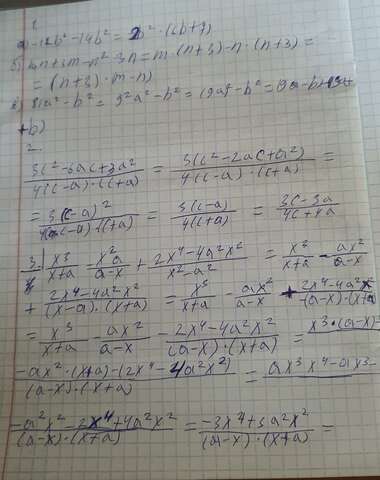 1
а) -12b² - 14b² = 2b² · (6b + 7)
б) mn + 3m - n² - 3n = m · (n+3) - n · (n+3) =
= (n+3) · m - n)
в) 81a² - b² = 9²a² - b² = (9a)² - b² = (9a - b)
+b)
2.
3c² - 6ac + 3a² / 4(c-a) · (c+a) = 3(c² - 2ac + a²) / 4(c-a) · (c+a) =
= 3(c-a)² / 4(c-a) · (c+a) = 3(c-a) / 4(c+a) = 3c - 3a / 4c + 4a
3. x³ / x+a - x²a / a-x + 2x⁴ - 4a²x² / x² - a² = x³ / x+a - ax² / a-x
+ 2x⁴ - 4a²x² / (x-a) · (x+a) = x³ / x+a - ax² / a-x + 2x⁴ - 4a²x² / (a-x) · (x+a)
= x³ / x+a - ax² / a-x - 2x⁴ - 4a²x² / (a-x) · (x+a) = x³ · (a-x)
-ax² · (x+a) - (2x⁴ - 4a²x²) / (a-x) · (x+a) = ax³ x⁴ - ax³ -
-a²x² - 2x⁴ + 4a²x² / (a-x) · (x+a) = -3x⁴ + 3a²x² / (a-x) · (x+a) =